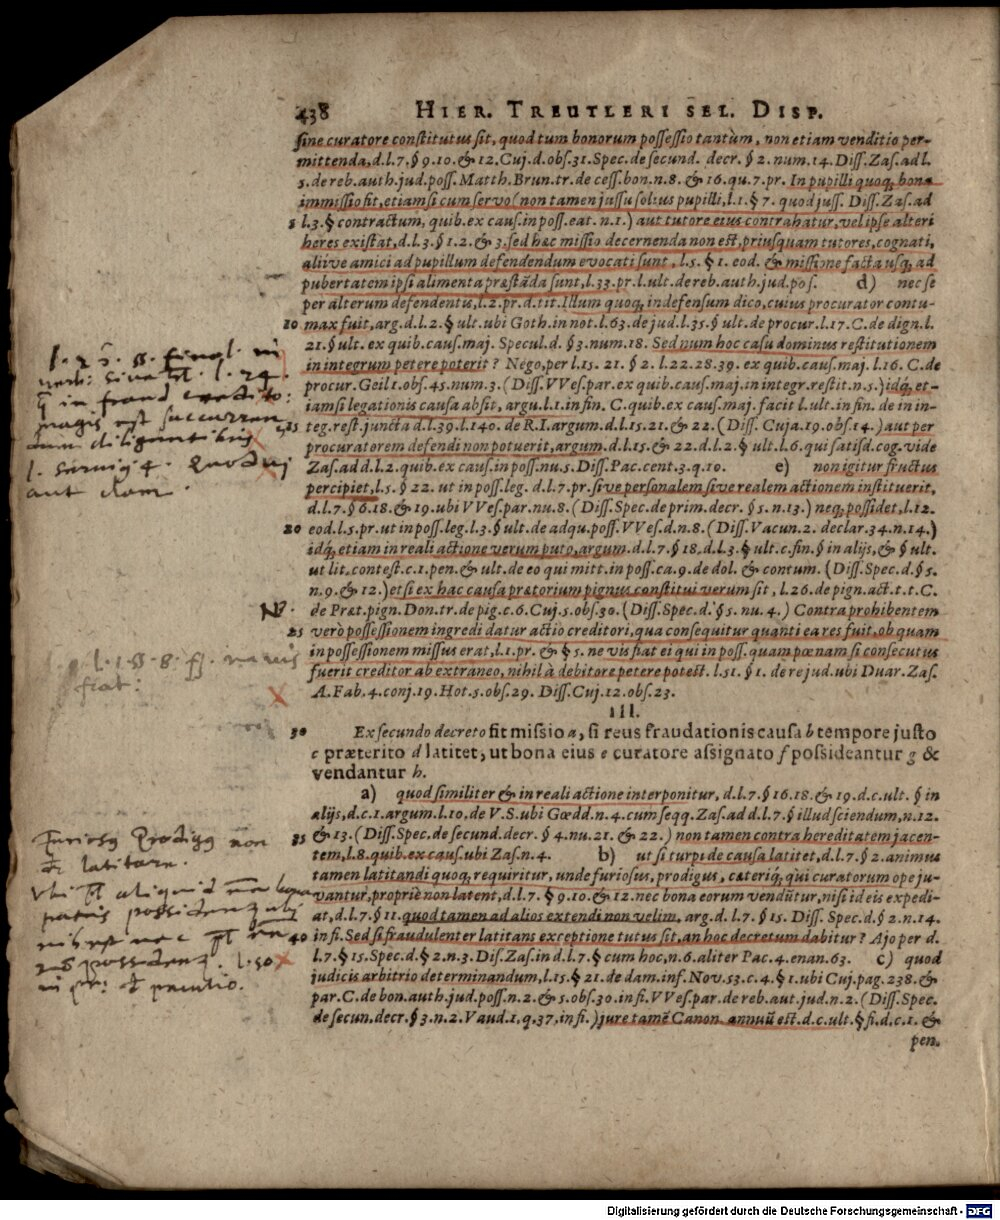 438 HIER. TREUTLERI SEL. DISP.
sine curatore constitutus sit, quod tum bonorum possessio tantùm, non etiam venditio per-
mittenda, d.l.7. § 9.10. & 12. Cuj. d. obs. 31. Spec. de secund. decr. § 2. num. 14. Diss. Zas. ad l.
5. de reb. auth. jud. poss. Matth. Brun. tr. de cess. bon. n. 8. & 16. qu. 7. pr. In pupilli quoq; bona
immissio fit, etiamsi cum servo (non tamen jussu solius pupilli, l.1. § 7. quod juss. Diss. Zas. ad
5 l.3. § contractum, quib. ex caus. in poss. eat. n.1.) aut tutore eius contrahatur, vel ipse alteri
heres existat, d.l.3. § 1.2. & 3. sed hæc missio decernenda non est, priusquam tutores, cognati,
aliive amici ad pupillum defendendum evocati sunt, l.5. § 1. eod. & missione facta usq; ad
pubertatem ipsi alimenta præstāda sunt, l.33. pr. l. ult. de reb. auth. jud. pos. d) nec se
per alterum defendentis, l.2. pr. d. tit. Illum quoq; indefensum dico, cuius procurator contu-
10 max fuit, arg. d.l.2. § ult. ubi Goth. in not. l.63. de jud. l.35. § ult. de procur. l.17. C. de dign. l.
21. § ult. ex quib. caus. maj. Specul. d. § 3. num. 18. Sed num hoc casu dominus restitutionem
in integrum petere poterit? Nego, per l.15. 21. § 2. l.22.28.39. ex quib. caus. maj. l.16. C. de
procur. Geil 1. obs. 45. num. 3. (Diss. VVes. par. ex quib. caus. maj. in integr. restit. n.5.) idq́, et-
iamsi legationis causa absit, argu. l.1. in fin. C. quib. ex caus. maj. facit l. ult. in fin. de in in-
15 teg. rest. juncta d.l.39. l.140. de R.I. argum. d.l.15.21. & 22. (Diss. Cuja. 19. obs. 14.) aut per
procuratorem defendi non potuerit, argum. d.l.15. & 22. d.l.2. § ult. l.6. qui satisd. cog. vide
Zas. ad d.l.2. quib. ex caus. in poss. nu. 5. Diss. Pac. cent. 3. q. 10. e) non igitur fructus
percipiet, l.5. § 22. ut in poss. leg. d.l.7. pr. sive personalem sive realem actionem instituerit,
d.l.7. § 6.18. & 19. ubi VVes. par. nu. 8. (Diss. Spec. de prim. decr. § 5. n. 13.) neq; possidet, l.12.
20 eod. l.5. pr. ut in poss. leg. l.3. § ult. de adqu. poss. VVes. d. n. 8. (Diss. Vacun. 2. declar. 34. n. 14.)
idq́, etiam in reali actione verum puto, argum. d.l.7. § 18. d.l.3. § ult. c. fin. § in alijs, & § ult.
ut lit. contest. c.1. pen. & ult. de eo qui mitt. in poss. ca. 9. de dol. & contum. (Diss. Spec. d. § 5.
n. 9. & 12.) etsi ex hac causa prætorium pignus constitui verum sit, l.26. de pign. act. t.t. C.
de Præt. pign. Don. tr. de pig. c.6. Cuj. 5. obs. 30. (Diss. Spec. d. § 5. nu. 4.) Contra prohibentem
25 verò possessionem ingredi datur actio creditori, qua consequitur quanti ea res fuit, ob quam
in possessionem missus erat, l.1. pr. & § 5. ne vis fiat ei qui in poss. quam pœnam si consecutus
fuerit creditor ab extraneo, nihil à debitore petere potest. l.51. § 1. de re jud. ubi Duar. Zas.
A. Fab. 4. conj. 19. Hot. 5. obs. 29. Diss. Cuj. 12. obs. 23.
III.
30 Ex secundo decreto fit missio a, si reus fraudationis causa b tempore justo
c præterito d latitet, ut bona eius e curatore assignato f possideantur g &
vendantur h.
a) quod similiter & in reali actione interponitur, d.l.7. § 16.18. & 19. d.c. ult. § in
alijs, d.c.1. argum. l.10. de V.S. ubi Gœdd. n. 4. cum seqq. Zas. ad d.l.7. § illud sciendum, n. 12.
35 & 13. (Diss. Spec. de secund. decr. § 4. nu. 21. & 22.) non tamen contra hereditatem jacen-
tem, l.8. quib. ex caus. ubi Zas. n. 4. b) ut si turpi de causa latitet, d.l.7. § 2. animus
tamen latitandi quoq; requiritur, unde furiosus, prodigus, cæteriq́, qui curatorum ope ju-
vantur, propriè non latent, d.l.7. § 9.10. & 12. nec bona eorum vendūtur, nisi id eis expedi-
at, d.l.7. § 11. quod tamen ad alios extendi non velim, arg. d.l.7. § 15. Diss. Spec. d. § 2. n. 14.
40 in fi. Sed si fraudulenter latitans exceptione tutus sit, an hoc decretum dabitur? Ajo per d.
l.7. § 15. Spec. d. § 2. n. 3. Dis. Zas. in d.l.7. § cum hoc, n. 6. aliter Pac. 4. enan. 63. c) quod
judicis arbitrio determinandum, l.15. § 21. de dam. inf. Nov. 53. c. 4. § 1. ubi Cuj. pag. 238. &
par. C. de bon. auth. jud. poss. n. 2. & 5. obs. 30. in fi. VVes. par. de reb. aut. jud. n. 2. (Diss. Spec.
de secun. decr. § 3. n. 2. Vaud. 1. q. 37. in fi.) jure tamē Canon. annuū est. d.c. ult. § fi. d.c.1. &
pen.
l. 25. ff. l. 24.
in fraud
magis est succurren
dum diligentibus
l. 4. Quod vi
aut clam.
NB.
l. 1. ff. 8. ff. ne vis
fiat:
Furiosus Prodigus non
latitare.
Digitalisierung gefördert durch die Deutsche Forschungsgemeinschaft - DFG